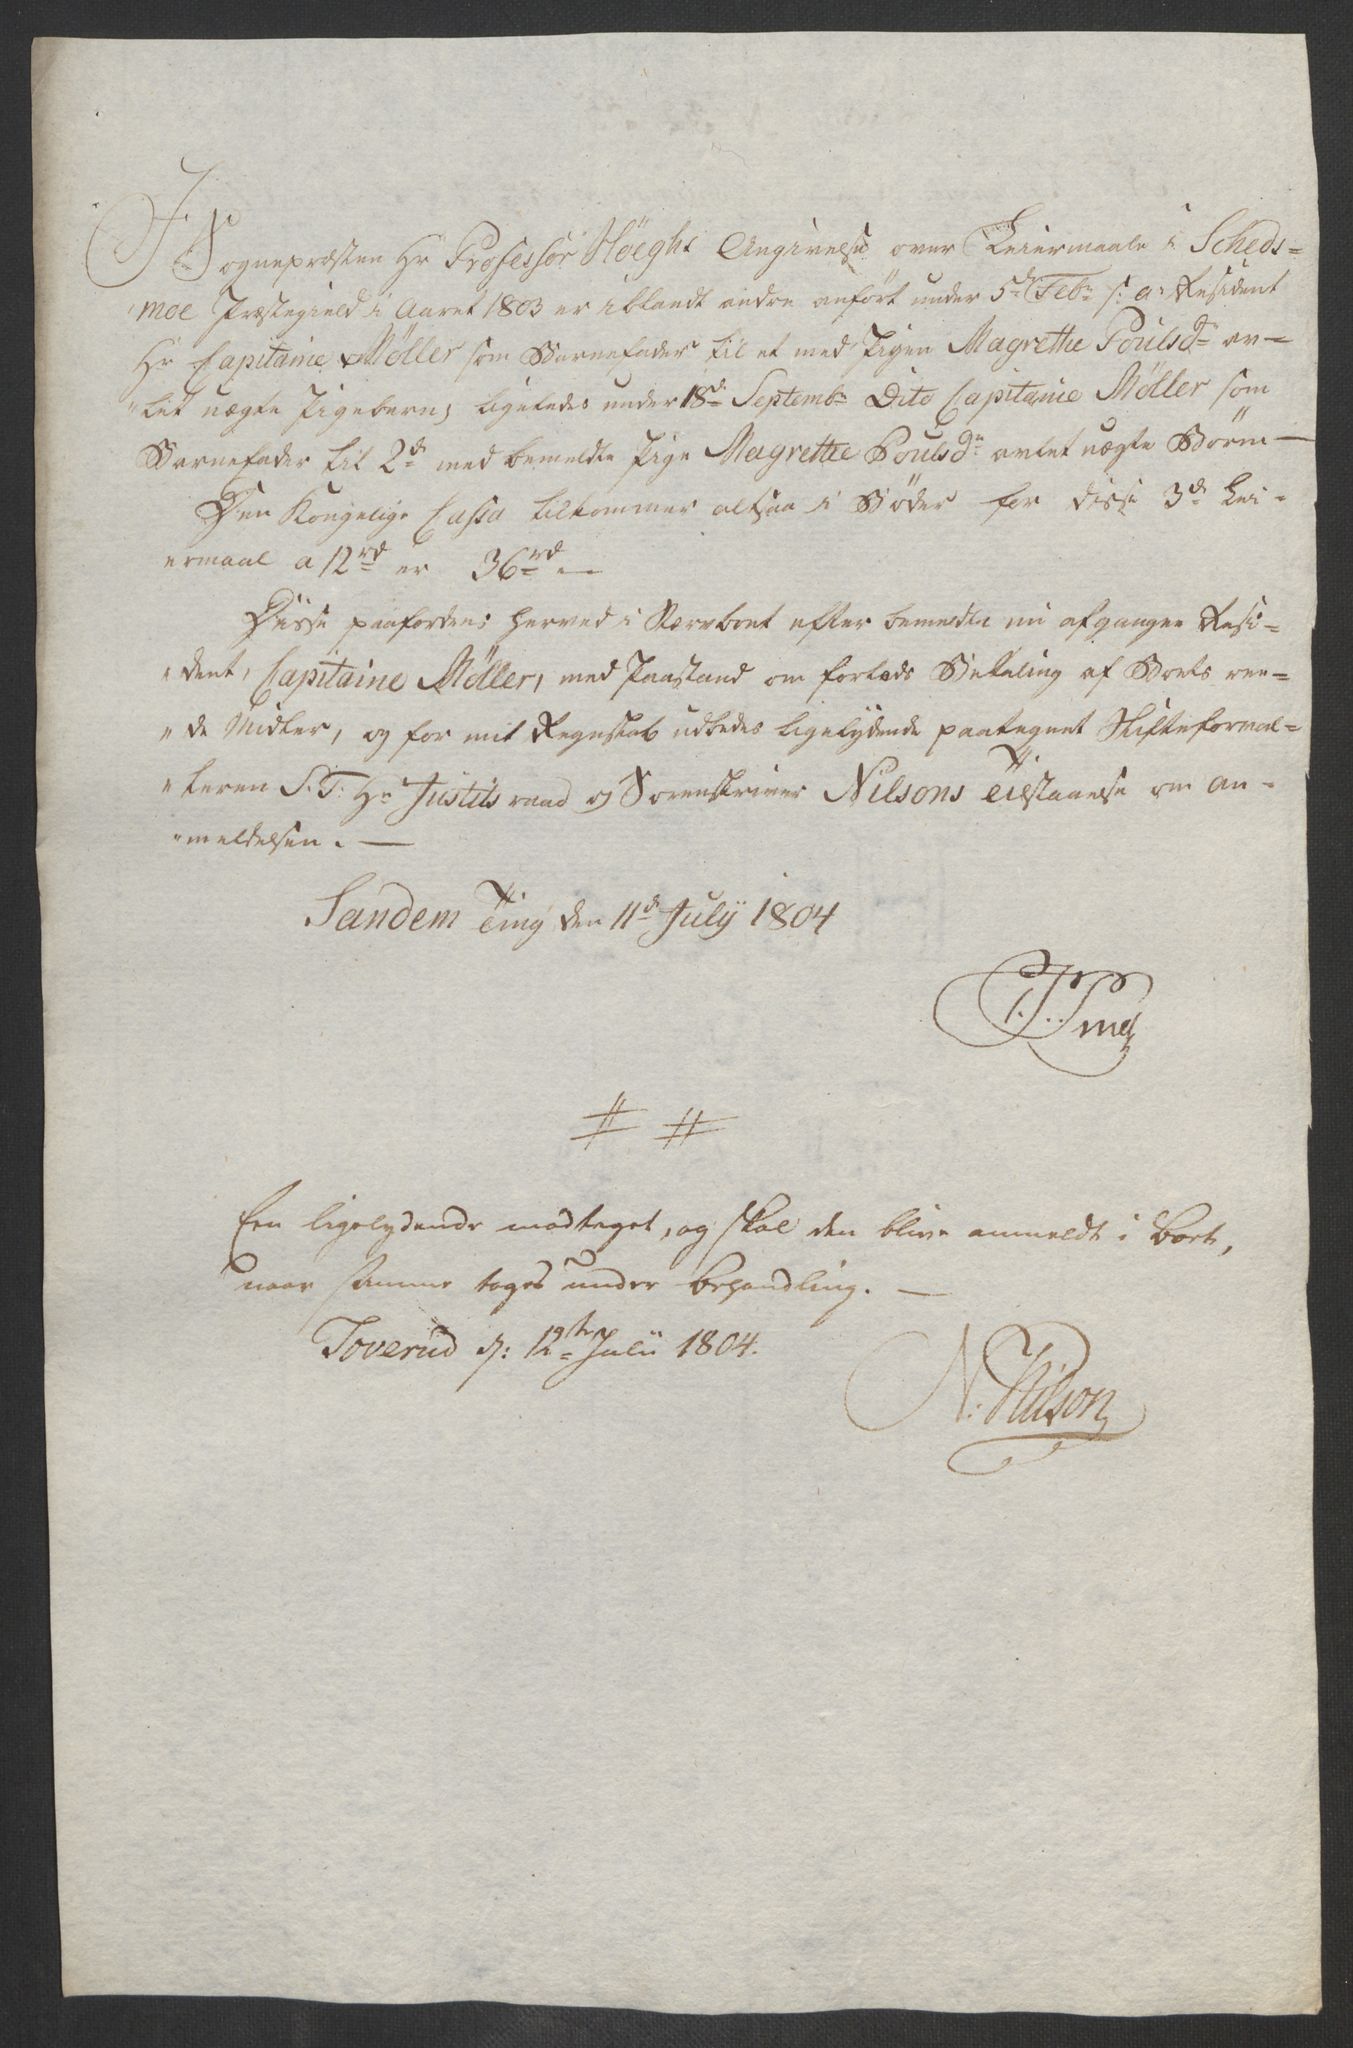 I Sognepræsten Hr Professor Höeghs Angivelse over Leiermaale i Scheds-
moe Præstegield i Aaret 1803 er iblandt andre anført under 5de Febr s: a: Resident
Hr Capitaine Møller som Barnefader til et med Pigen Magrethe Poulsdr av-
let uægte Pigebarn; ligeledes under 18de Septembr Dito Capitaine Møller som
Barnefader til 2de med bemeldte Pige Magrethe Poulsdr avlet uægte Børn —
Den Kongelige Cassa tilkommer altsaa i Bøder for disse 3de Lei-
ermaal a 12rd er 36rd —
Disse paafordres herved i Stervboet efter bemeldte nu afgangne Resi-
dent, Capitaine Møller, med Paastand om forlods Betaling af Boets ree-
de Midler, og for mit Regnskab udbedes ligelydende paategnet Skifteforval-
teren S. T. Hr Justitsraad og Sorenskriver Nilsons Tilstaaelse om An-
meldelsen. —
Sandem Ting den 11de July 1804
Een ligelydende modtaget, og skal den blive anmeldt i Boet,
naar samme tages under behandling. —
Toverud d: 12te Julii 1804.
N: Nilson